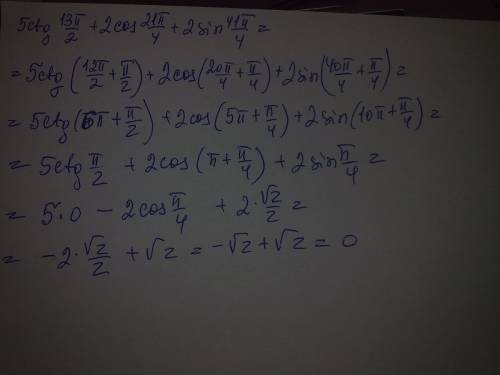 5ctg 13π/2 + 2cos 21π/4 + 2sin 41π/4 =
= 5ctg (12π/2 + π/2) + 2cos(20π/4 + π/4) + 2sin(40π/4 + π/4) =
= 5ctg(6π + π/2) + 2cos(5π + π/4) + 2sin(10π + π/4) =
= 5ctg π/2 + 2cos(π + π/4) + 2sin π/4 =
= 5·0 − 2cos π/4 + 2·√2/2 =
= −2·√2/2 + √2 = −√2 + √2 = 0